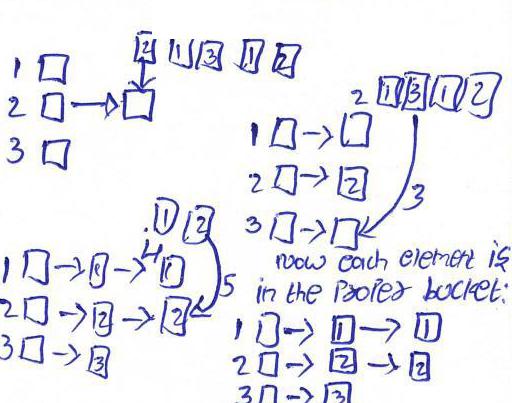 2 1 3 1 2
1
2
3
2 1 3 1 2
1
2 2
3
3
1 2
1 1 4 1
2 2 2 5
3 3
now each element is
in the proper bucket:
1 1 1
2 2 2
3 3